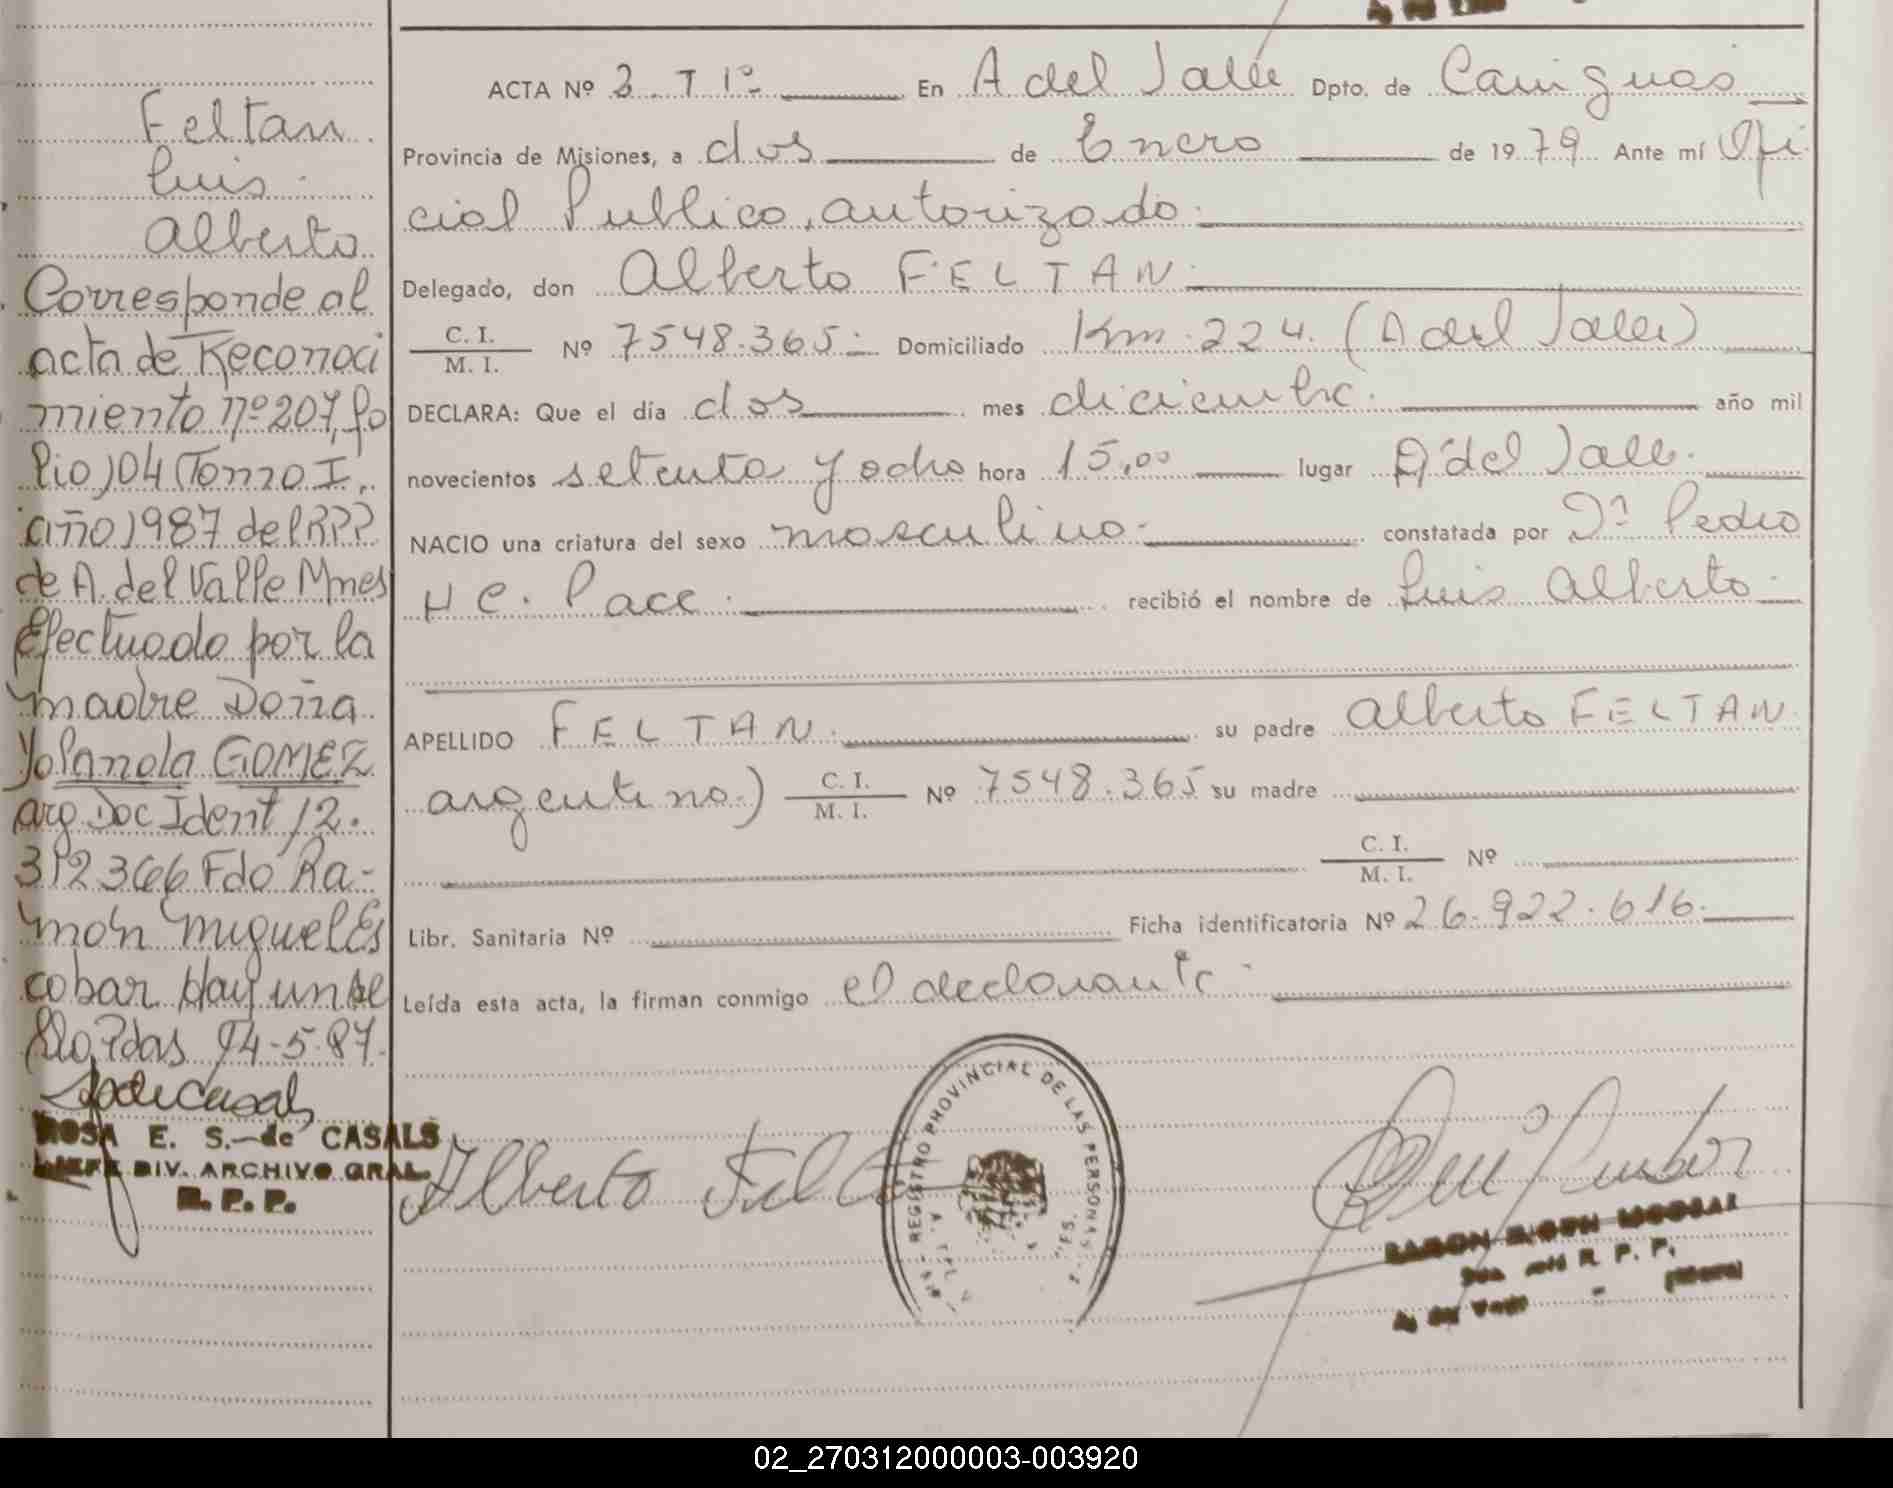 Feltan
Luis
Alberto
Corresponde al
acta de Reconoci
miento nº 207, fo
lio 104 Tomo I,
año 1987 del R.P.P.
de A. del Valle Mnes
Efectuado por la
madre Doña
Yolanda GOMEZ
arg Doc Ident 12.
312366 Fdo Ra-
món Miguel Es
cobar Hay un se
llo. Pdas 14-5-87.
ROSA E. S. de CASALS
JEFE DIV. ARCHIVO GRAL.
R. P. P.
ACTA Nº 3. T 1º En A del Valle Dpto. de Cainguas
Provincia de Misiones, a dos de Enero de 1979 Ante mí Ofi
cial Publico, autorizado.
Delegado, don Alberto FELTAN.
C. I.
M. I. Nº 7548.365 Domiciliado Km. 224. (A del Valle)
DECLARA: Que el día dos mes diciembre. año mil
novecientos setenta y ocho hora 15,00 lugar A del Valle.
NACIO una criatura del sexo masculino. constatada por Dº Pedro
H C. Pace. recibió el nombre de Luis Alberto.
APELLIDO FELTAN. su padre Alberto FELTAN.
argentino.) C. I.
M. I. Nº 7548.365 su madre
C. I.
M. I. Nº
Libr. Sanitaria Nº Ficha identificatoria Nº 26.922.616.
Leída esta acta, la firman conmigo el declarante.
REGISTRO PROVINCIAL DE LAS PERSONAS
Alberto Felta
R. P. P.
02_270312000003-003920